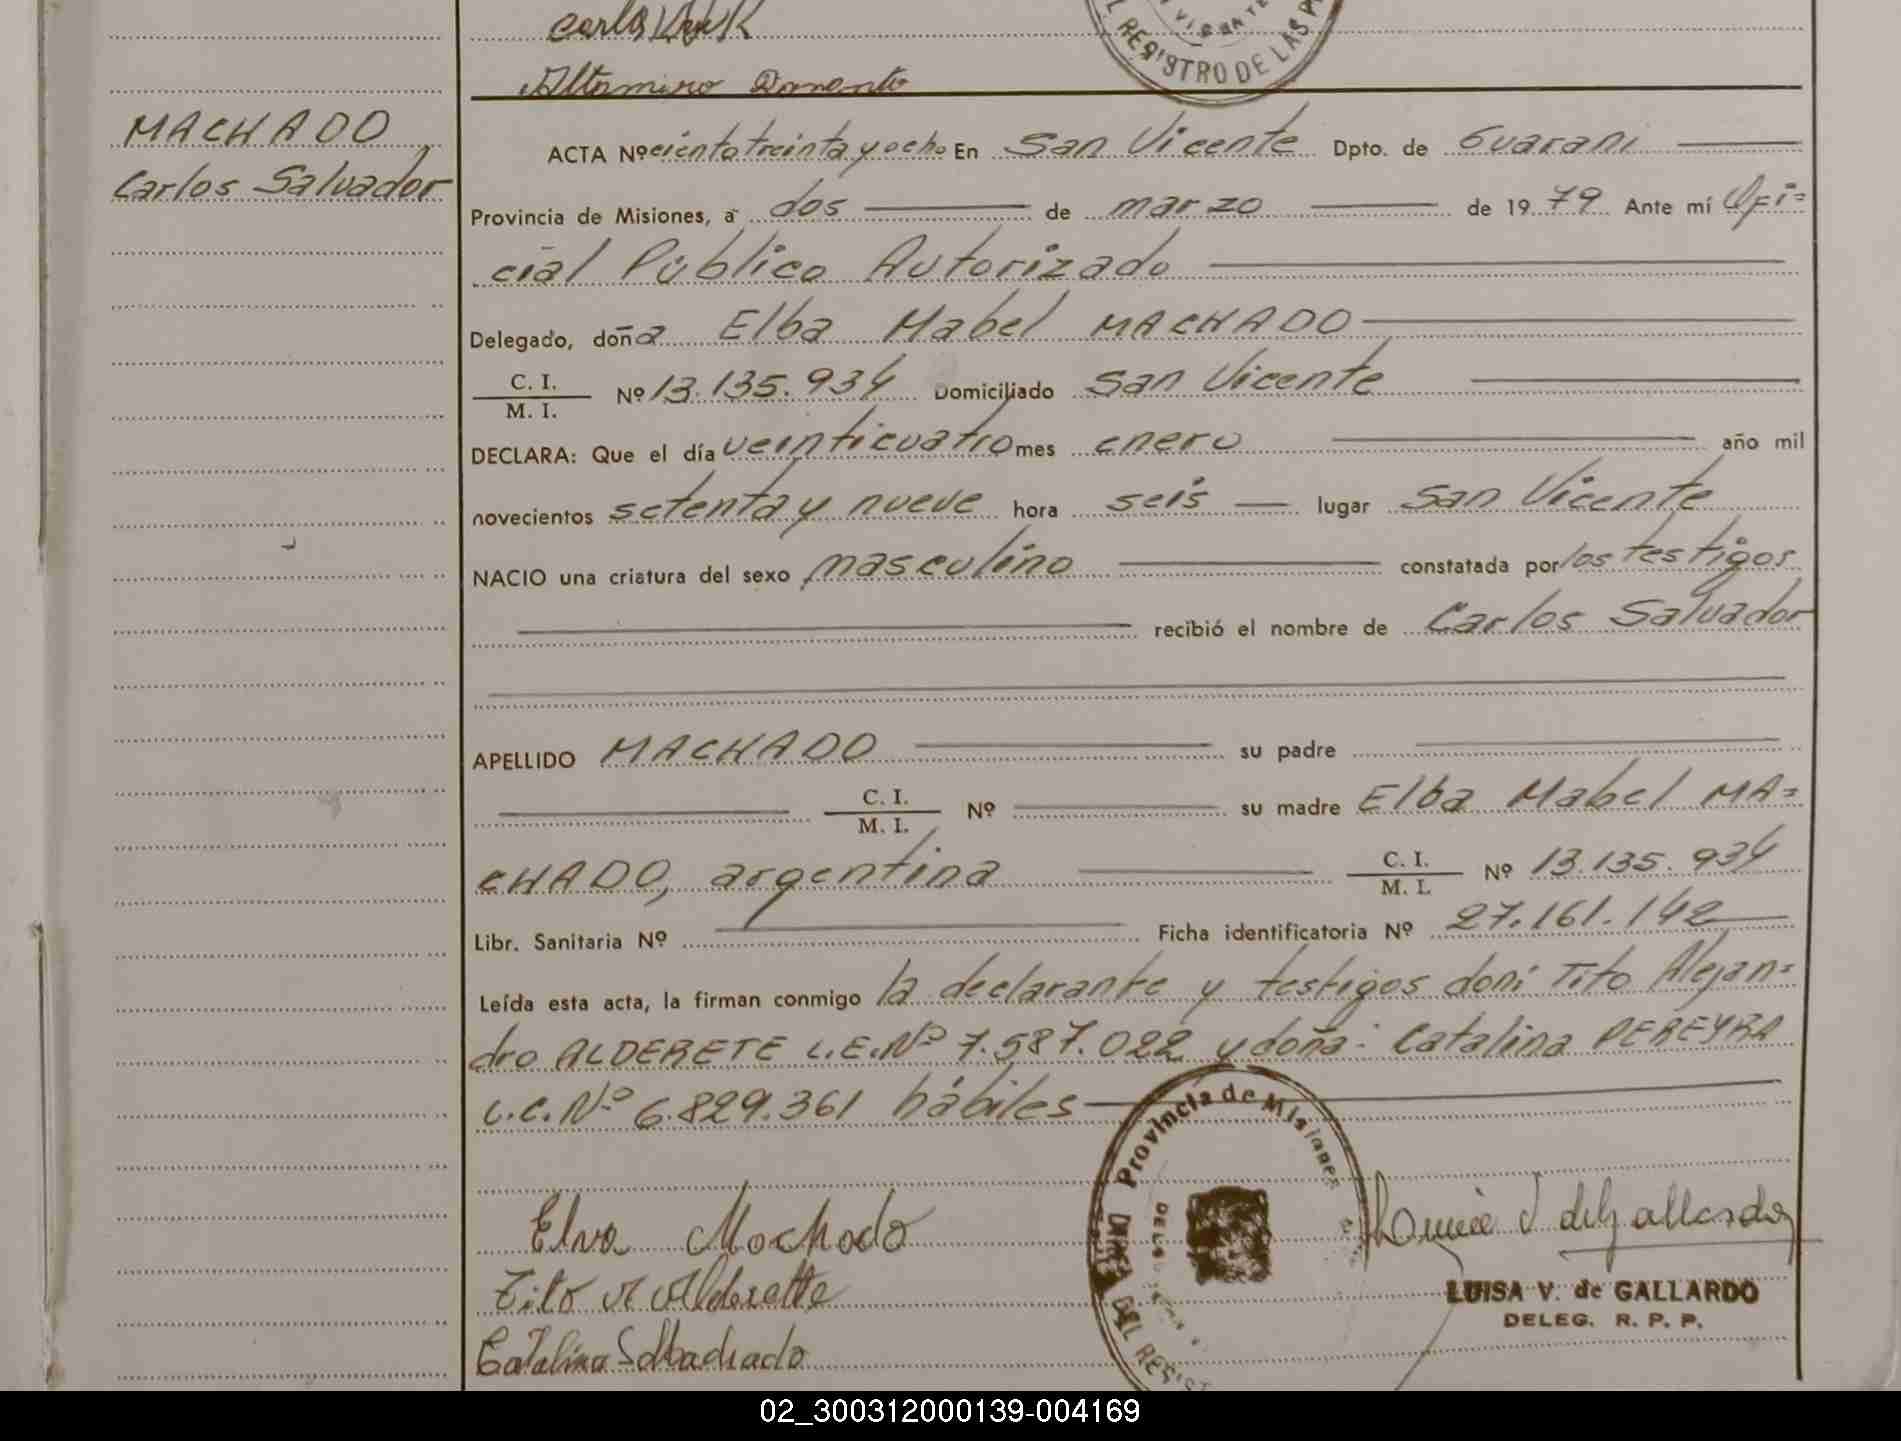 Carlos
Altamiro
EL REGISTRO DE LAS P
MACHADO
Carlos Salvador
ACTA Nº ciento treinta y ocho En San Vicente Dpto. de Guaraní
Provincia de Misiones, a dos de marzo de 1979 Ante mí Ofi=
cial Público Autorizado
Delegado, doña Elba Mabel MACHADO
C. I.
M. I. Nº 13.135.934 Domiciliado San Vicente
DECLARA: Que el día veinticuatro mes enero año mil
novecientos setenta y nueve hora seis lugar San Vicente
NACIO una criatura del sexo masculino constatada por los testigos
recibió el nombre de Carlos Salvador
APELLIDO MACHADO su padre
C. I.
M. I. Nº su madre Elba Mabel MA=
CHADO, argentina C. I.
M. I. Nº 13.135.934
Libr. Sanitaria Nº Ficha identificatoria Nº 27.161.142
Leída esta acta, la firman conmigo la declarante y testigos don: Tito Alejan=
dro ALDERETE L.E.Nº 7.587.022 y doña: Catalina PEREYRA
L.C.Nº 6.829.361 hábiles
Provincia de Misiones
DEL REGIST
Elva Machado
Tito A Alderette
Catalina
Luisa V. de Gallardo
LUISA V. de GALLARDO
DELEG. R. P. P.
02_300312000139-004169